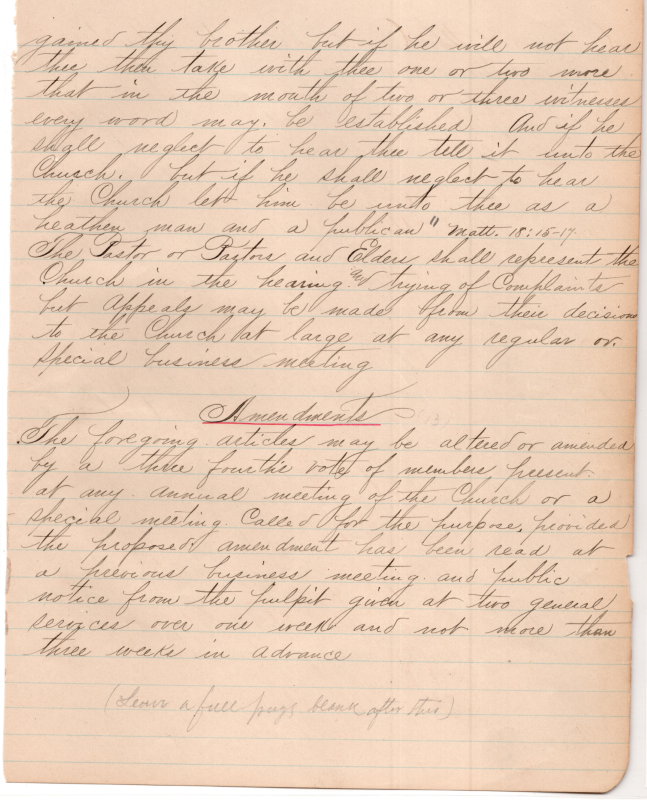 gained thy brother but if he will not hear
thee then take with thee one or two more
that in the mouth of two or three witnesses
every word may. be established And if he
shall neglect to hear thee tell it unto the
Church. but if he shall neglect to hear
the Church let him be unto thee as a
heathen man and a publican" Matt. 18:15-17.
The Pastor or Pastors and Elders shall represent the
Church in the hearing and trying of Complaints
but appeals may be made from their decisions
to the Church at large at any regular or.
special business meeting
Amendments
The foregoing articles may be altered or amended
by a three fourths vote of members present.
at any annual meeting of the Church or a
special meeting called for the purpose, provided
the proposed amendment has been read at
a previous business meeting and public
notice from the pulpit given at two general
services over one week and not more than
three weeks in advance
(Leave a full page blank after this)